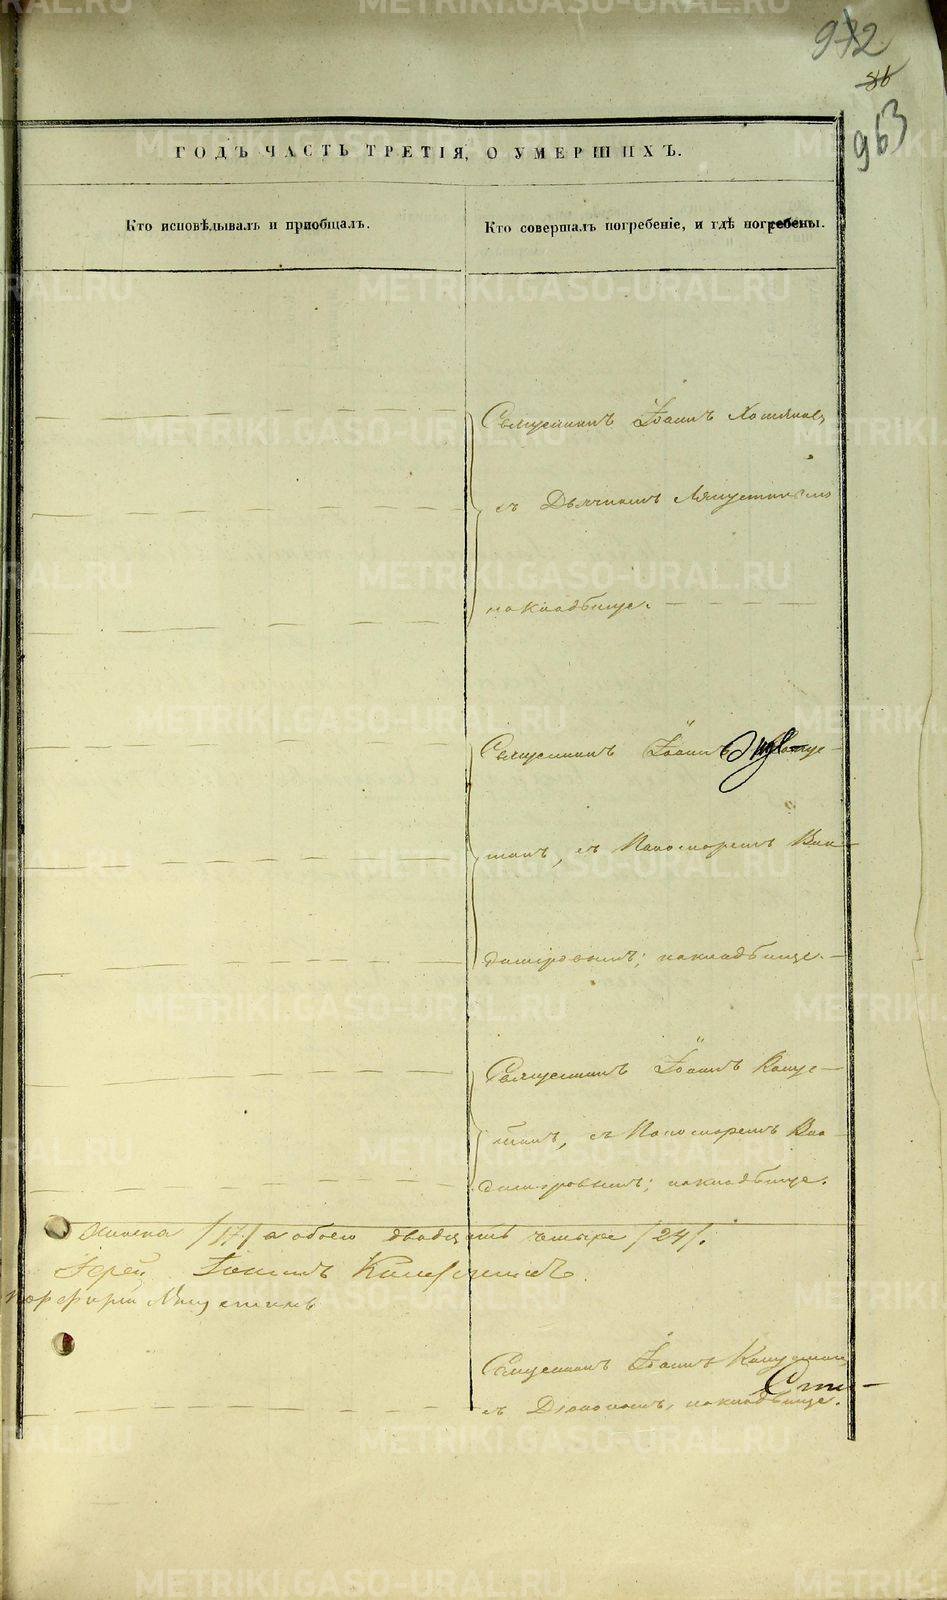 972
86
963
ГОДЪ ЧАСТЬ ТРЕТІЯ, О УМЕРШИХЪ.
Кто исповѣдывалъ и приобщалъ.
Кто совершалъ погребеніе, и гдѣ погребены.
Священникъ Іоаннъ Хомяковъ
съ Дьячкомъ Ляпустинымъ
на кладбище.
Священникъ Іоаннъ Капус-
тинъ, съ Пономаремъ Вла-
диміровымъ; на кладбище.
Священникъ Іоаннъ Капус-
тинъ, съ Пономаремъ Вла-
диміровымъ; на кладбище.
женска /17/ а обоего двадцать четыре /24/.
Іерей Іоаннъ Капустинъ
Порфирій
Священникъ Іоаннъ Капустинъ
съ Діакономъ, на кладбище.
METRIKI.GASO-URAL.RU